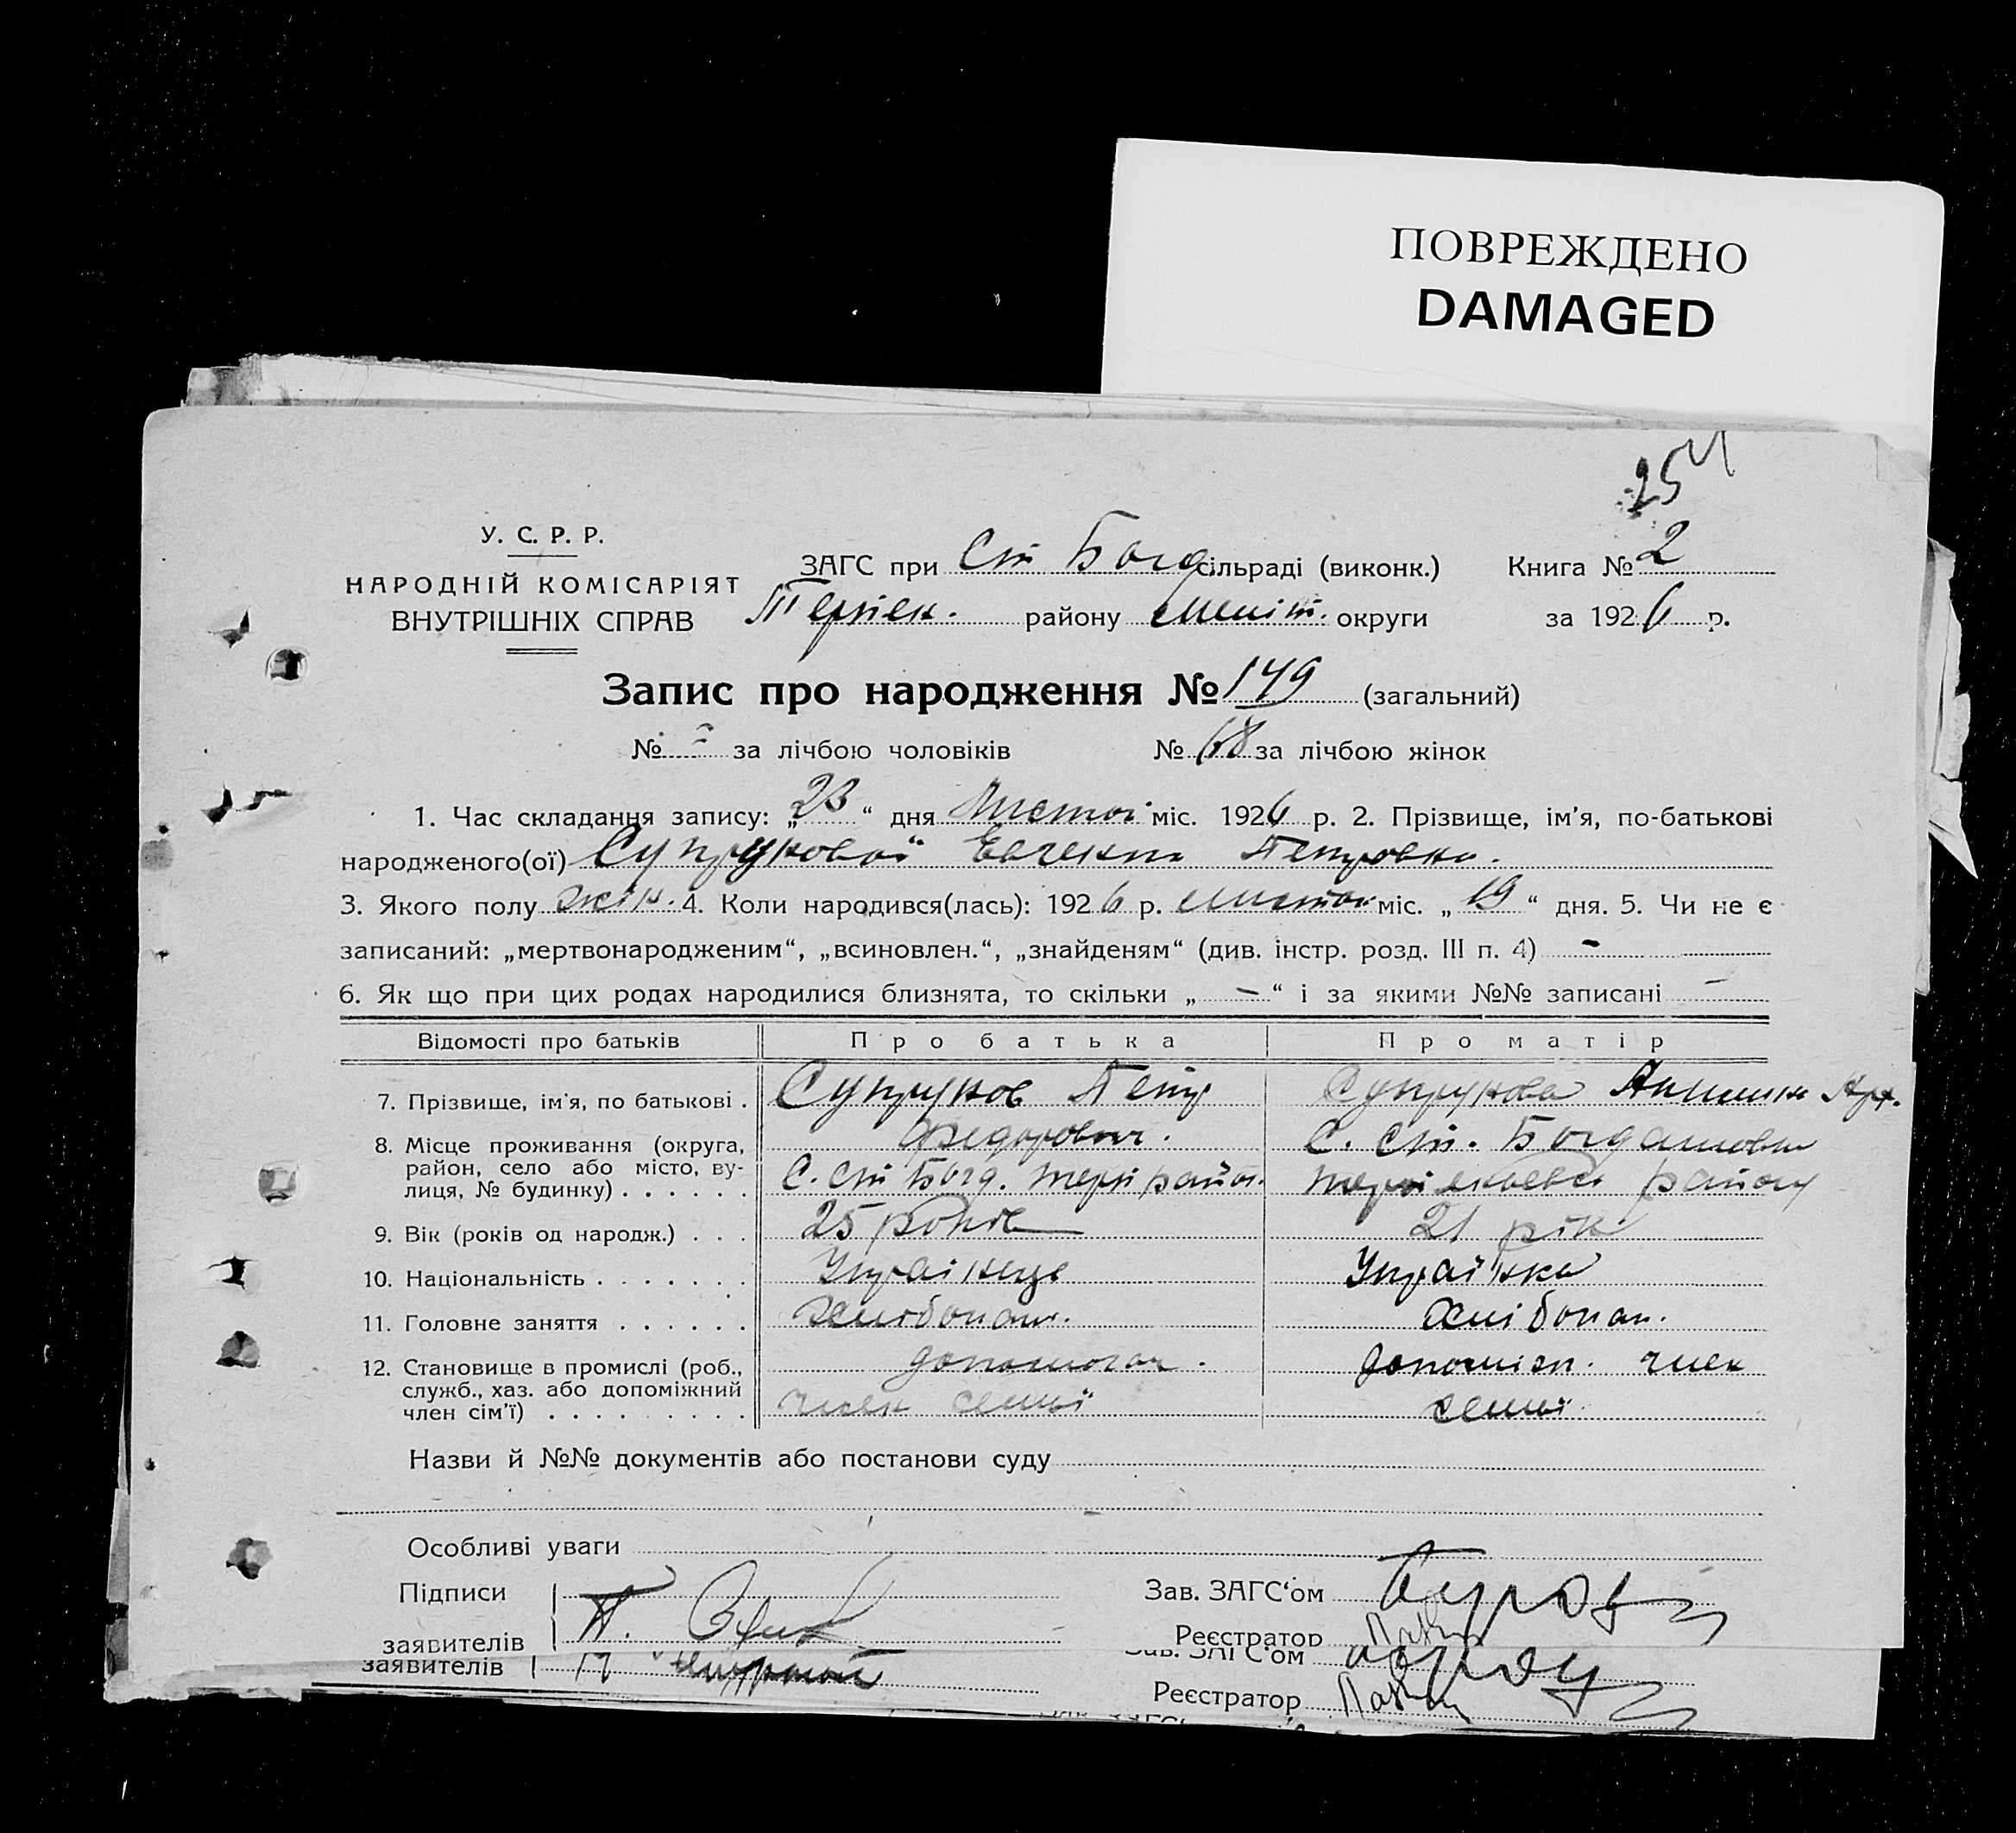 ПОВРЕЖДЕНО
DAMAGED
У. С. Р. Р.
НАРОДНІЙ КОМІСАРІЯТ
ВНУТРІШНІХ СПРАВ
ЗАГС при Ст Богд. сільраді (виконк.) Книга № 2
району Меліт. округи за 1926 р.
Запис про народження № 149 (загальний)
№ - за лічбою чоловіків № 68 за лічбою жінок
1. Час складання запису: „23“ дня Листоп міс. 1926 р. 2. Прізвище, ім'я, по-батькові
народженого(ої) Супрукової Евгения Петровна.
3. Якого полу жін. 4. Коли народився(лась): 1926 р. листоп міс. „19“ дня. 5. Чи не є
записаний: „мертвонародженим“, „всиновлен.“, „знайденям“ (див. інстр. розд. III п. 4) -
6. Як що при цих родах народилися близнята, то скільки „-“ і за якими №№ записані -
Відомості про батьків Про батька Про матір
7. Прізвище, ім'я, по батькові . Супруков Петр Федорович. Супрукова
8. Місце проживання (округа, район, село або місто, вулиця, № будинку) . . . . . . С. Ст Богд. район. С. Ст. Богдановка району
9. Вік (років од народж.) . . . 25 років 21 рік
10. Національність . . . . . . . Українець Українка
11. Головне заняття . . . . . . Хлібопаш. Хлібопаш.
12. Становище в промислі (роб., служб., хаз. або допоміжний член сім'ї) . . . . . . . . . допомогач. член семьї допоміж. член семьї
Назви й №№ документів або постанови суду
Особливі уваги
Підписи
заявителів
Зав. ЗАГС'ом
Реєстратор
заявителів
Зав. ЗАГС'ом
Реєстратор